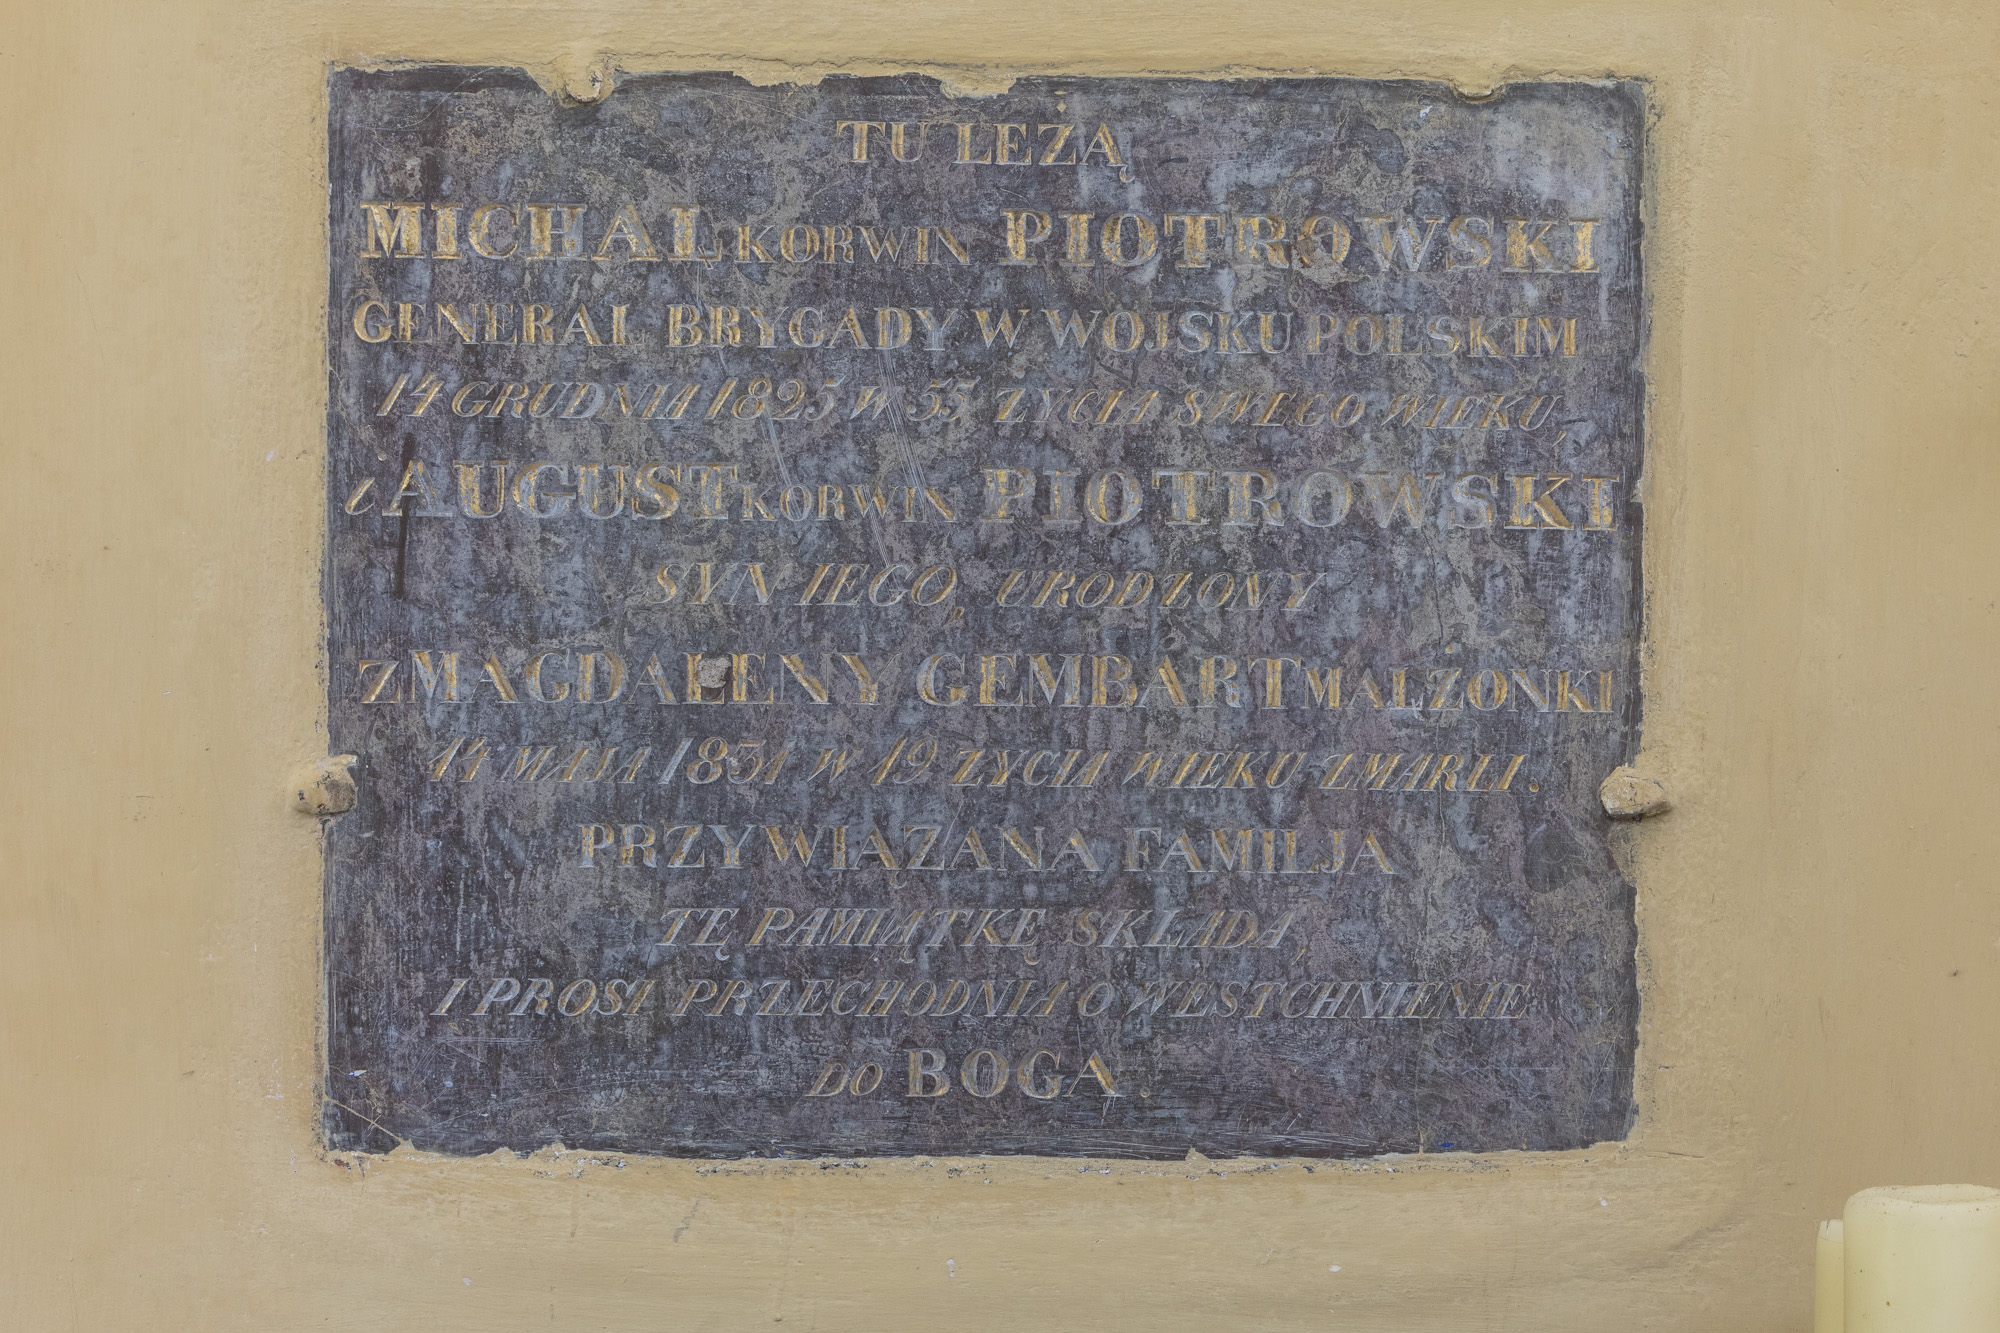 TU LEŻĄ
MICHAŁ KORWIN PIOTROWSKI
GENERAŁ BRYGADY W WOJSKU POLSKIM
14 GRUDNIA 1825 W 55 ZYCIA SWEGO WIEKU,
i AUGUST KORWIN PIOTROWSKI
SYN IEGO, URODZONY
Z MAGDALENY GEMBART MAŁŻONKI
14 MAIA 1831 W 19 ZYCIA WIEKU ZMARLI.
PRZYWIĄZANA FAMILJA
TĘ PAMIĄTKĘ SKŁADA,
I PROSI PRZECHODNIA O WESTCHNIENIE
DO BOGA.